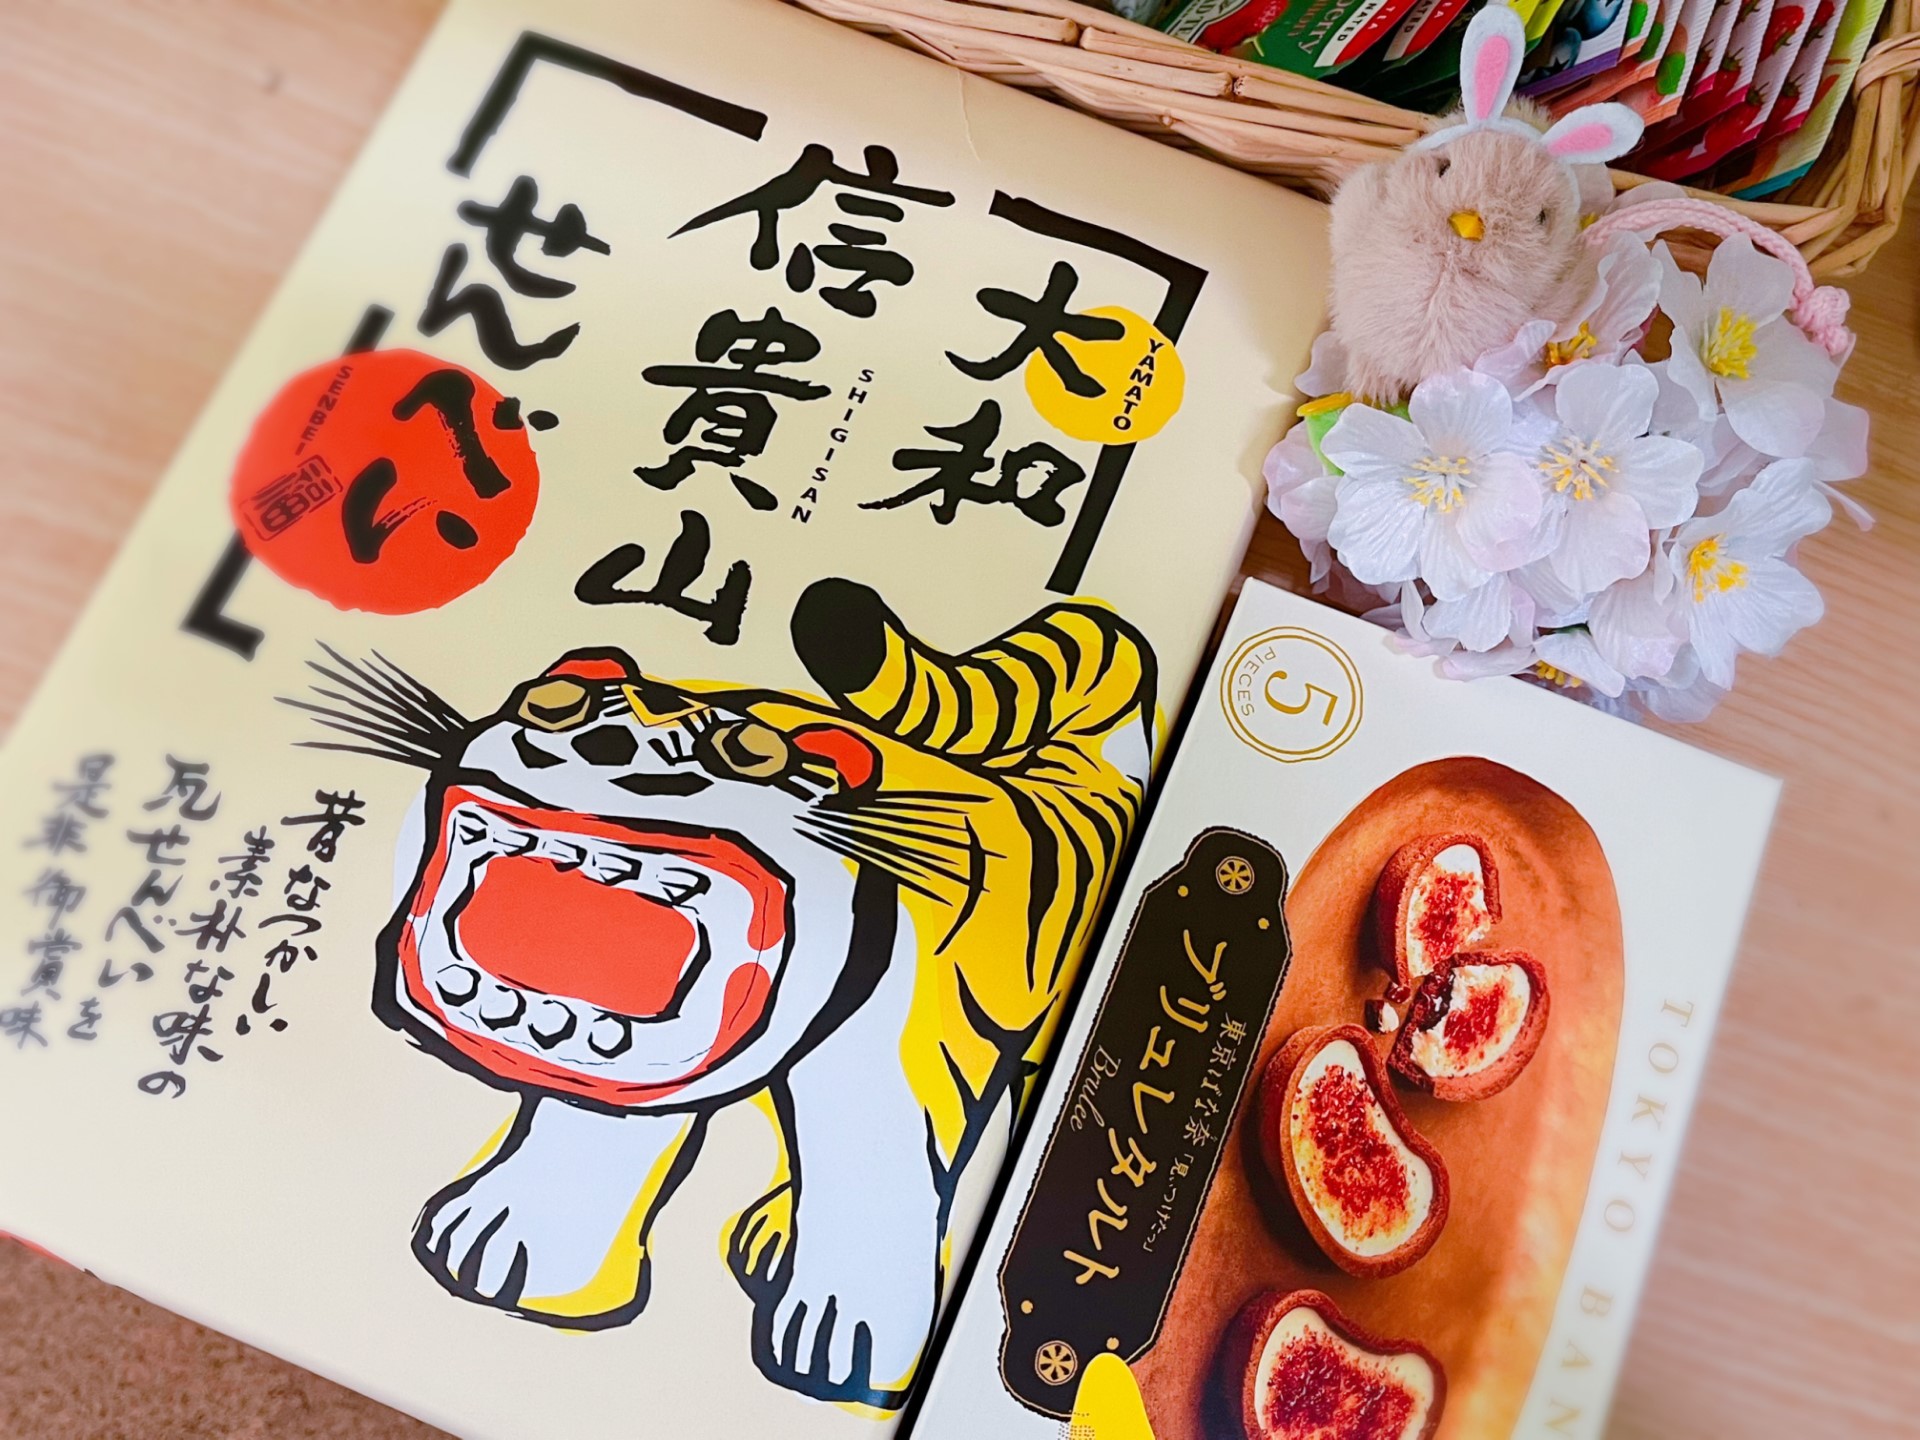 大和
YAMATO
信貴山
SHIGISAN
せんべい
SENBEI
昔なつかしい
素朴な味の
瓦せんべいを
是非御賞味
5
PIECES
東京ばな奈「見ぃつけたっ」
ブリュレタルト
Brulee
TOKYO BAN
TEA